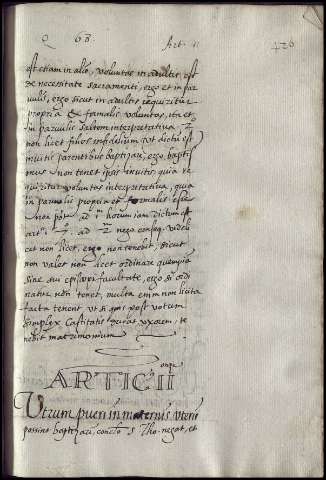 Q 68. Art. 11 426
est etiam in alio, voluntas in adultis, est
de necessitate sacramenti, ergo et in par
vulis, ergo sicut in adultis requiritur
propria & formalis voluntas, ita et
in parvulis saltem interpretativa. 2
non licet filios infidelium ut dictum est
invitis parentibus baptizare, ergo, bapti
mus non tenet ipsis invitis quia re
quiritur voluntas interpretativa, quia
in parvulis propria et formalis esse
non pot. ad horum iam dictum est
art. ad 2 nego conseq. videli
cet non licet, ergo non tenebit, sicut
non valet non licet ordinare quempiam
sine sui episcopi facultate, ergo si ordi
natur non tenet, multa enim non licita
facta tenent ut si quis post votum
simplex castitatis ducat uxorem, te
nebit matrimonium
ARTIC. 11
Utrum pueri in maternis uteris
possint baptizari, conclo S Tho. negat, et